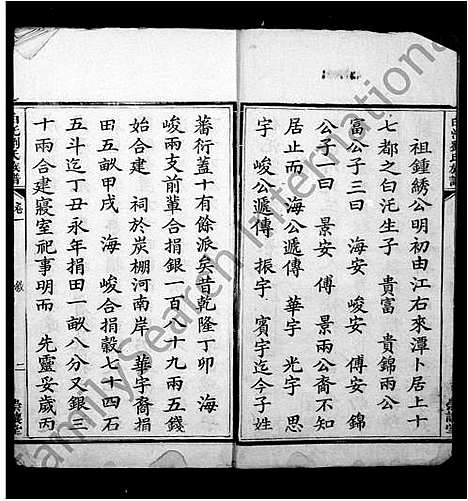 祖鍾綉公明初由江右來潭卜居上十
七都之白沱生子　貴富　貴錦兩公
富公子三曰　海安　峻安　傅安　錦
公子一曰　景安　傅　景兩公裔不知
居止而　海公遞傳　華宇　光宇　思
宇　峻公遞傳　振宇　賓宇迄今子姓
蕃衍蓋十有餘派矣昔乾隆丁卯　海
峻兩支前輩合捐銀一百八十九兩五錢
始合建　祠於炭棚河南岸　華宇裔捐
田五畝甲戌　海　峻合捐穀七十四石
五斗迄丁丑永年捐田一畝八分又銀三
十兩合建寢室祀事明而　先靈妥歲丙
白沱劉氏族譜
卷一
敘
二
崇讓堂
FamilySearch International